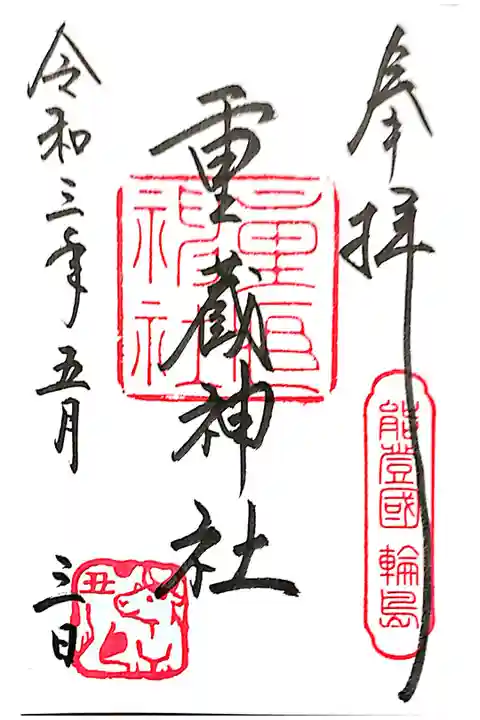 奉拝
能登國 輪島
重蔵神社
神社
令和三年五月三日
丑